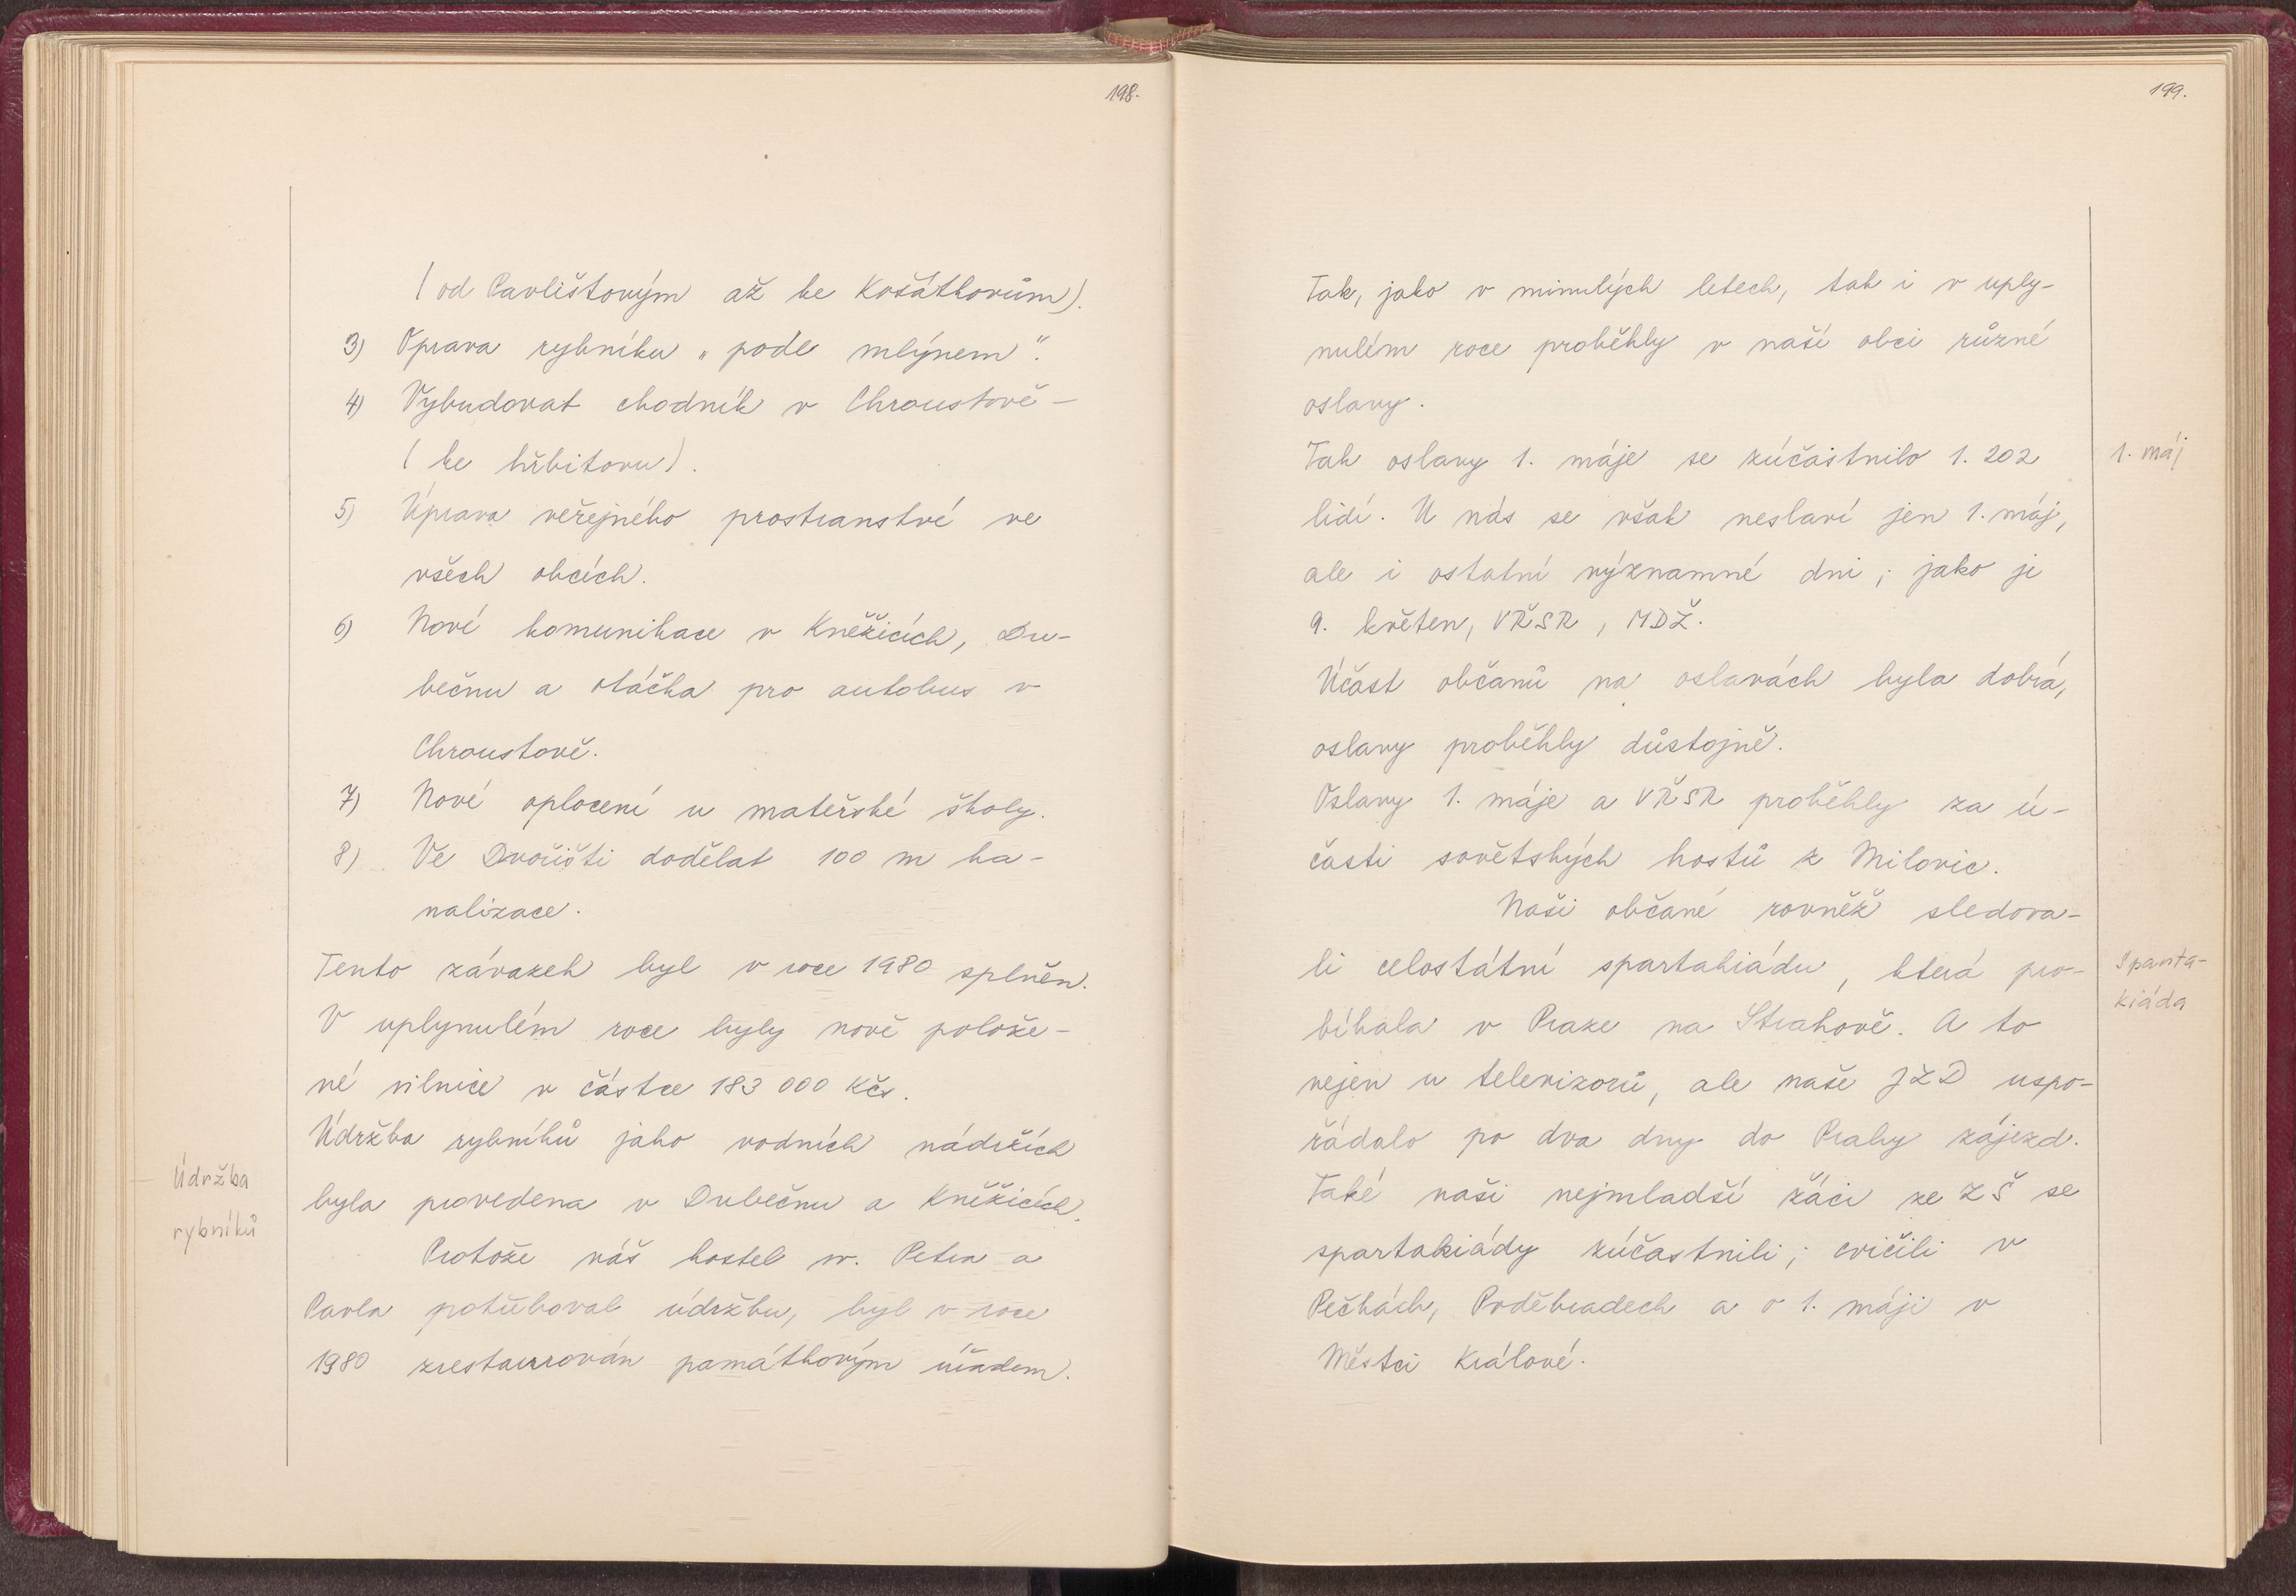 198.
(od Pavlištovým až ke Košátkovům).
3) Oprava rybníku „pode mlýnem".
4) Vybudovat chodník v Chroustově –
(ke hřbitovu).
5) Úprava veřejného prostranství ve
všech obcích.
6) Nové komunikace v Kněžicích, Du-
bečnu a otáčka pro autobus v
Chroustově.
7) Nové oplocení u mateřské školy.
8) Ve Dvořišti dodělat 100 m ka-
nalizace.
Tento závazek byl v roce 1980 splněn.
V uplynulém roce byly nově polože-
né silnice v částce 183 000 Kčs.
Údržba rybníků jako vodních nádržích
Údržba
byla provedena v Dubečnu a Kněžicích.
rybníků
Protože náš kostel sv. Petra a
Pavla potřeboval údržbu, byl v roce
1980 zrestaurován památkovým úřadem.
199.
Tak, jako v minulých letech, tak i v uply-
nulém roce proběhly v naší obci různé
oslavy.
Tak oslavy 1. máje se zúčastnilo 1.202
1. máj
lidí. U nás se však neslaví jen 1. máj,
ale i ostatní významné dni; jako je
9. květen, VŘSR, MDŽ.
Účast občanů na oslavách byla dobrá,
oslavy proběhly důstojně.
Oslavy 1. máje a VŘSR proběhly za ú-
časti sovětských hostů z Milovic.
Naši občané rovněž sledova-
li celostátní spartakiádu, která pro-
Sparta-
kiáda
bíhala v Praze na Strahově. A to
nejen u televizorů, ale naše JZD uspo-
řádalo po dva dny do Prahy zájezd.
Také naši nejmladší žáci ze ZŠ se
spartakiády zúčastnili; cvičili v
Pečkách, Poděbradech a o 1. máji v
Městci Králové.